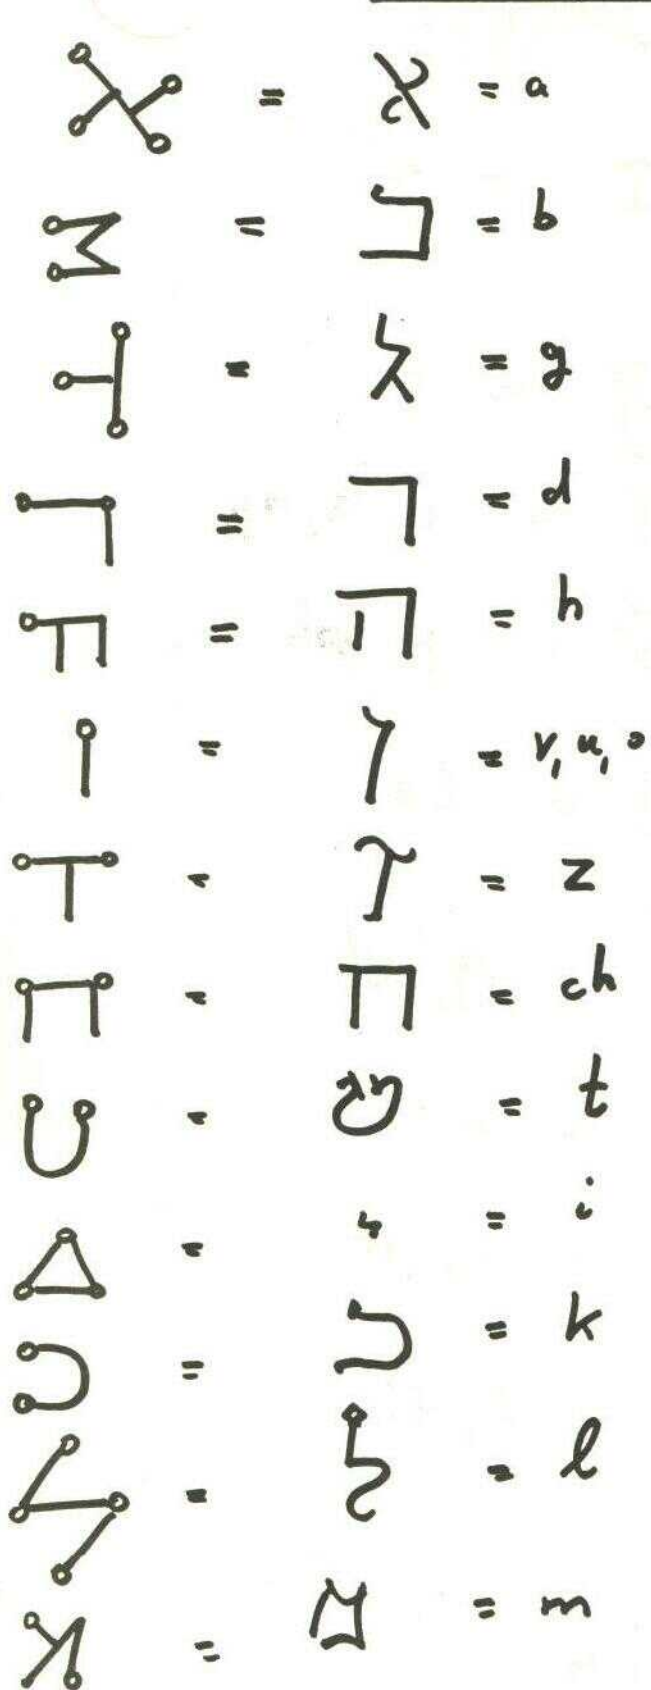 = א = a
= ב = b
= ג = g
= ד = d
= ה = h
= ו = v, u, o
= ז = z
= ח = ch
= ט = t
= י = i
= כ = k
= ל = l
= מ = m